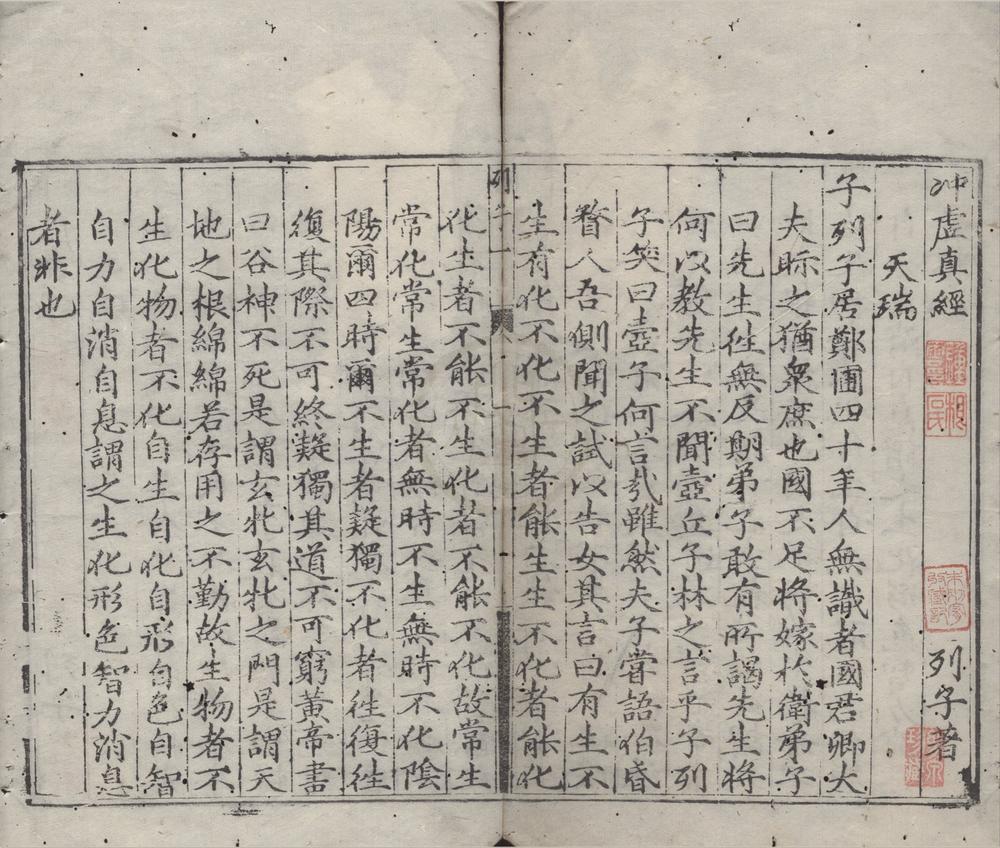 冲虛真經 列子著
天瑞
子列子居鄭圃四十年人無識者國君卿大
夫眎之猶衆庶也國不足將嫁於衛弟子
曰先生徃無反期弟子敢有所謁先生將
何以教先生不聞壺丘子林之言乎子列
子笑曰壺子何言㢤雖然夫子甞語伯昏
瞀人吾側聞之試以告女其言曰有生不
生有化不化不生者能生生不化者能化
列子一
一
化生者不能不生化者不能不化故常生
常化常生常化者無時不生無時不化隂
陽爾四時爾不生者疑獨不化者徃復徃
復其際不可終疑獨其道不可窮黃帝書
曰谷神不死是謂玄牝玄牝之門是謂天
地之根綿綿若存用之不勤故生物者不
生化物者不化自生自化自形自色自智
自力自消自息謂之生化形色智力消息
者非也